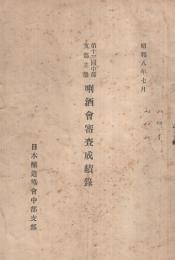 昭和八年七月
第十一回中部
支部主催
唎酒會審査成績錄
日本醸造協會中部支部